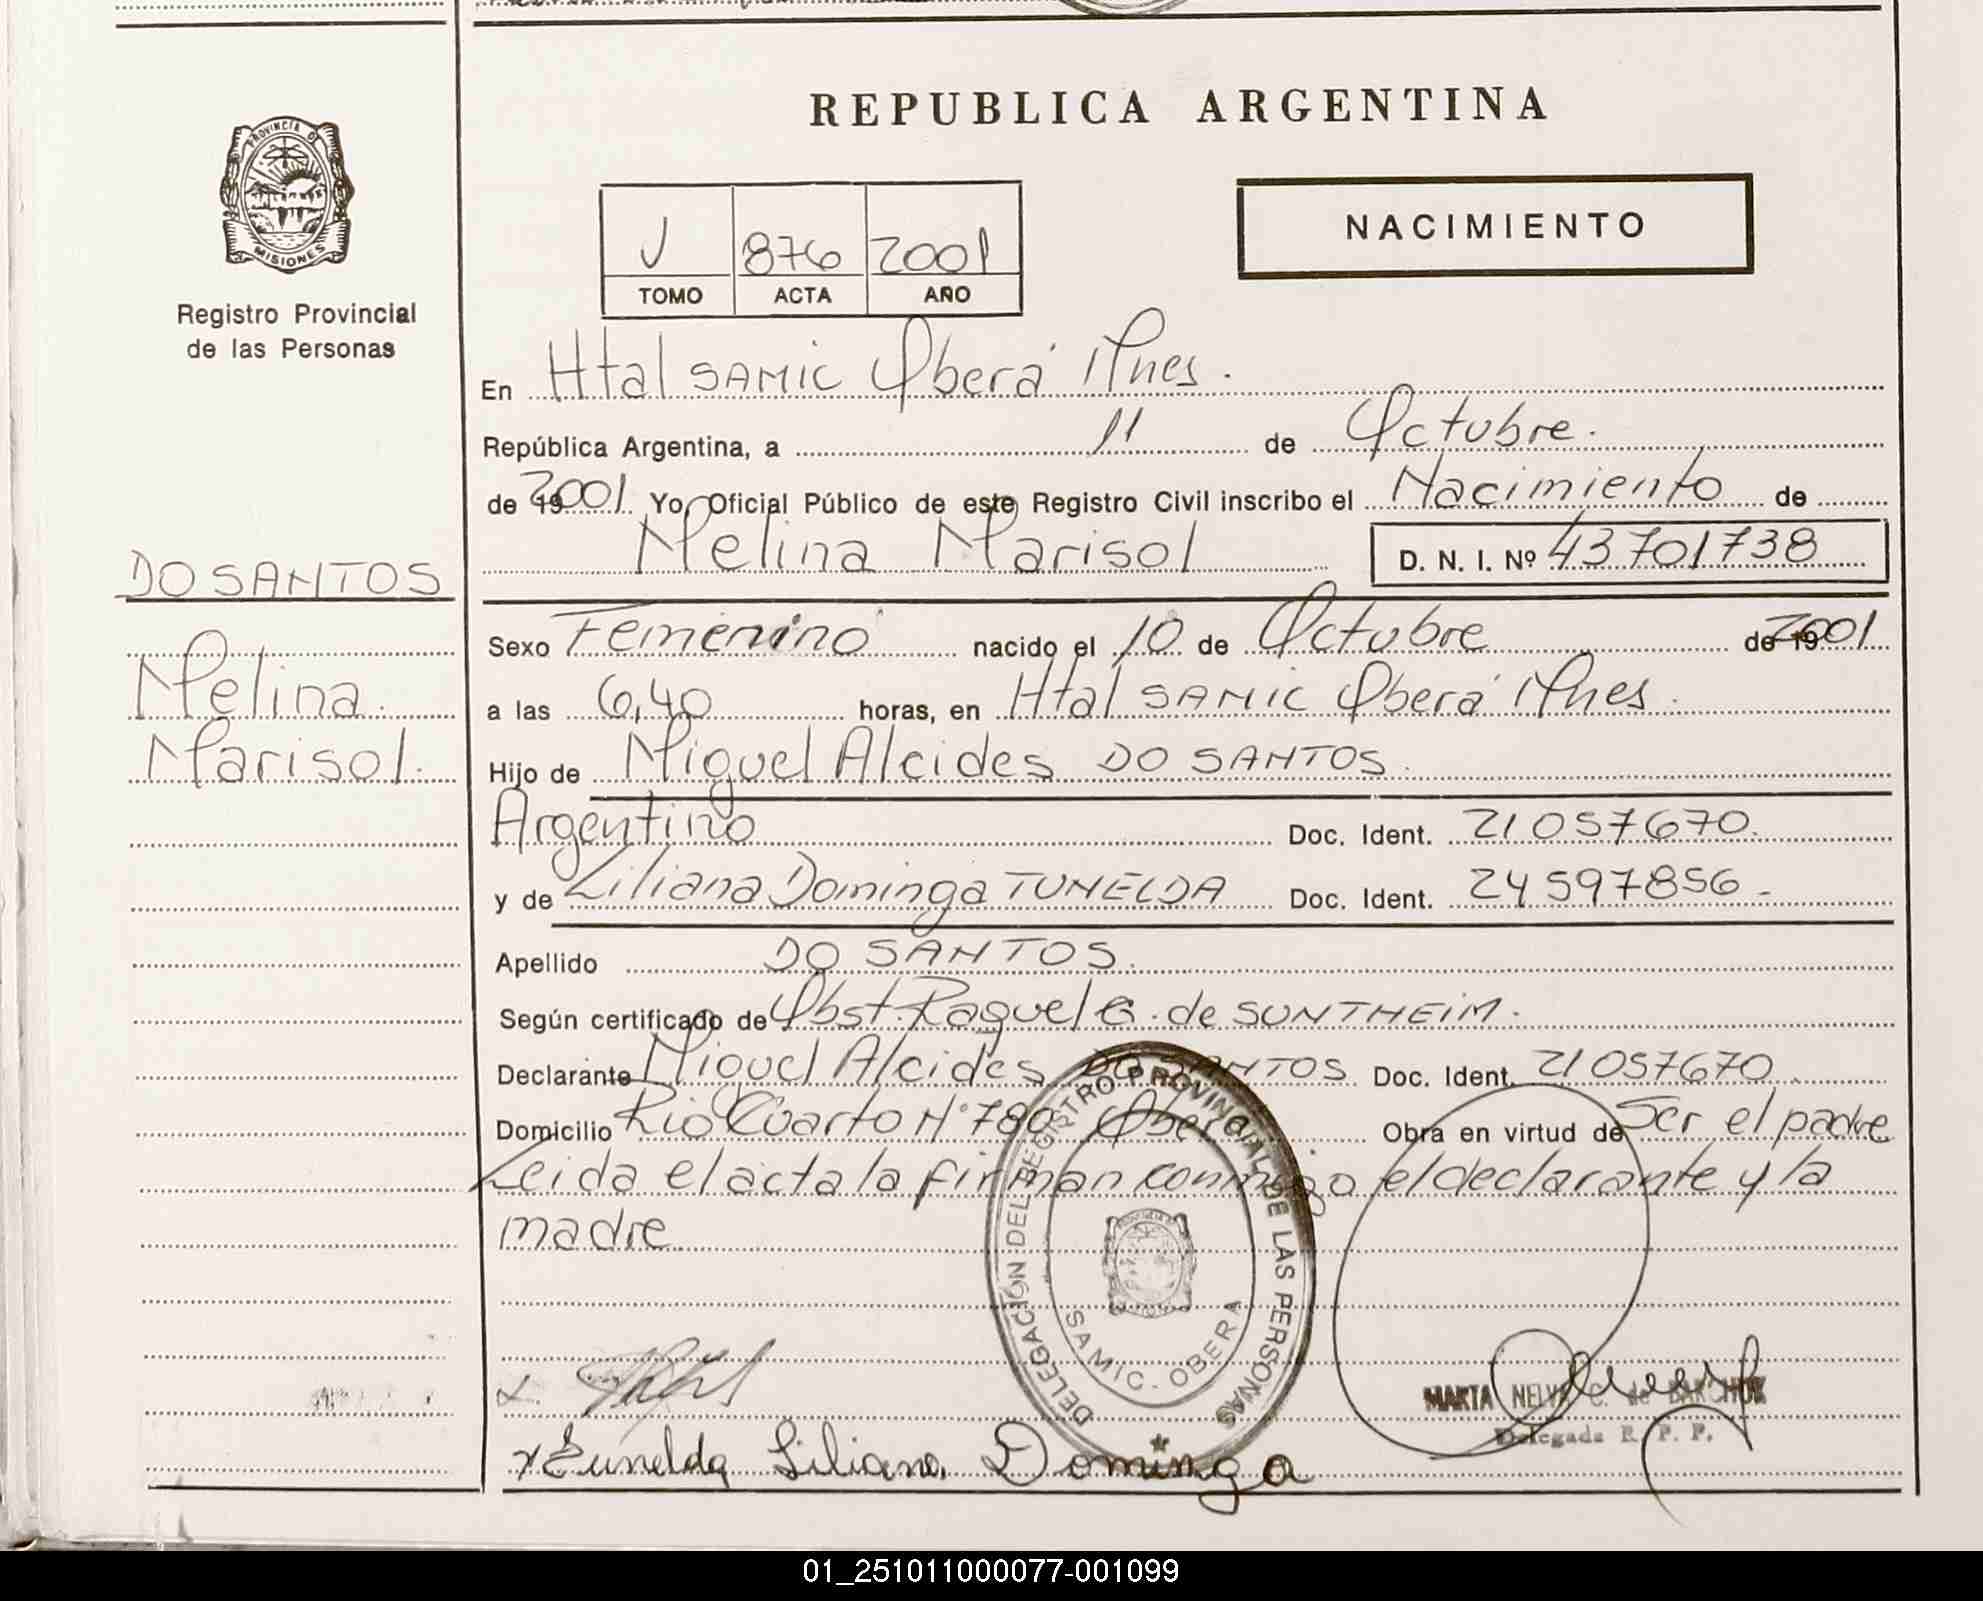 REPUBLICA ARGENTINA
PROVINCIA DE
MISIONES
Registro Provincial
de las Personas
J 876 2001
TOMO ACTA AÑO
NACIMIENTO
En Htal SAMIC Oberá Mnes.
República Argentina, a 11 de Octubre.
de 19 2001. Yo, Oficial Público de este Registro Civil inscribo el Nacimiento de
Melina Marisol D. N. I. Nº 43701738
DO SANTOS
Melina
Marisol.
Sexo Femenino nacido el 10 de Octubre de 19 2001
a las 6,40 horas, en Htal SAMIC Oberá Mnes.
Hijo de Miguel Alcides DO SANTOS.
Argentino Doc. Ident. 21057670.
y de Liliana Dominga TUNELDA Doc. Ident. 24597856-
Apellido DO SANTOS.
Según certificado de Obst. Raquel G. de SUNTHEIM.
Declarante Miguel Alcides DO SANTOS Doc. Ident. 21057670
Domicilio Rio Cuarto Nº 780 Oberá Obra en virtud de Ser el padre
Leida el acta la firman conmigo el declarante y la
madre.
DELEGACIÓN DEL REGISTRO PROVINCIAL DE LAS PERSONAS
SAMIC - OBERA
MARTA NELVA C. de
Delegada R. P. P.
x Tunelda Liliana Dominga
01_251011000077-001099